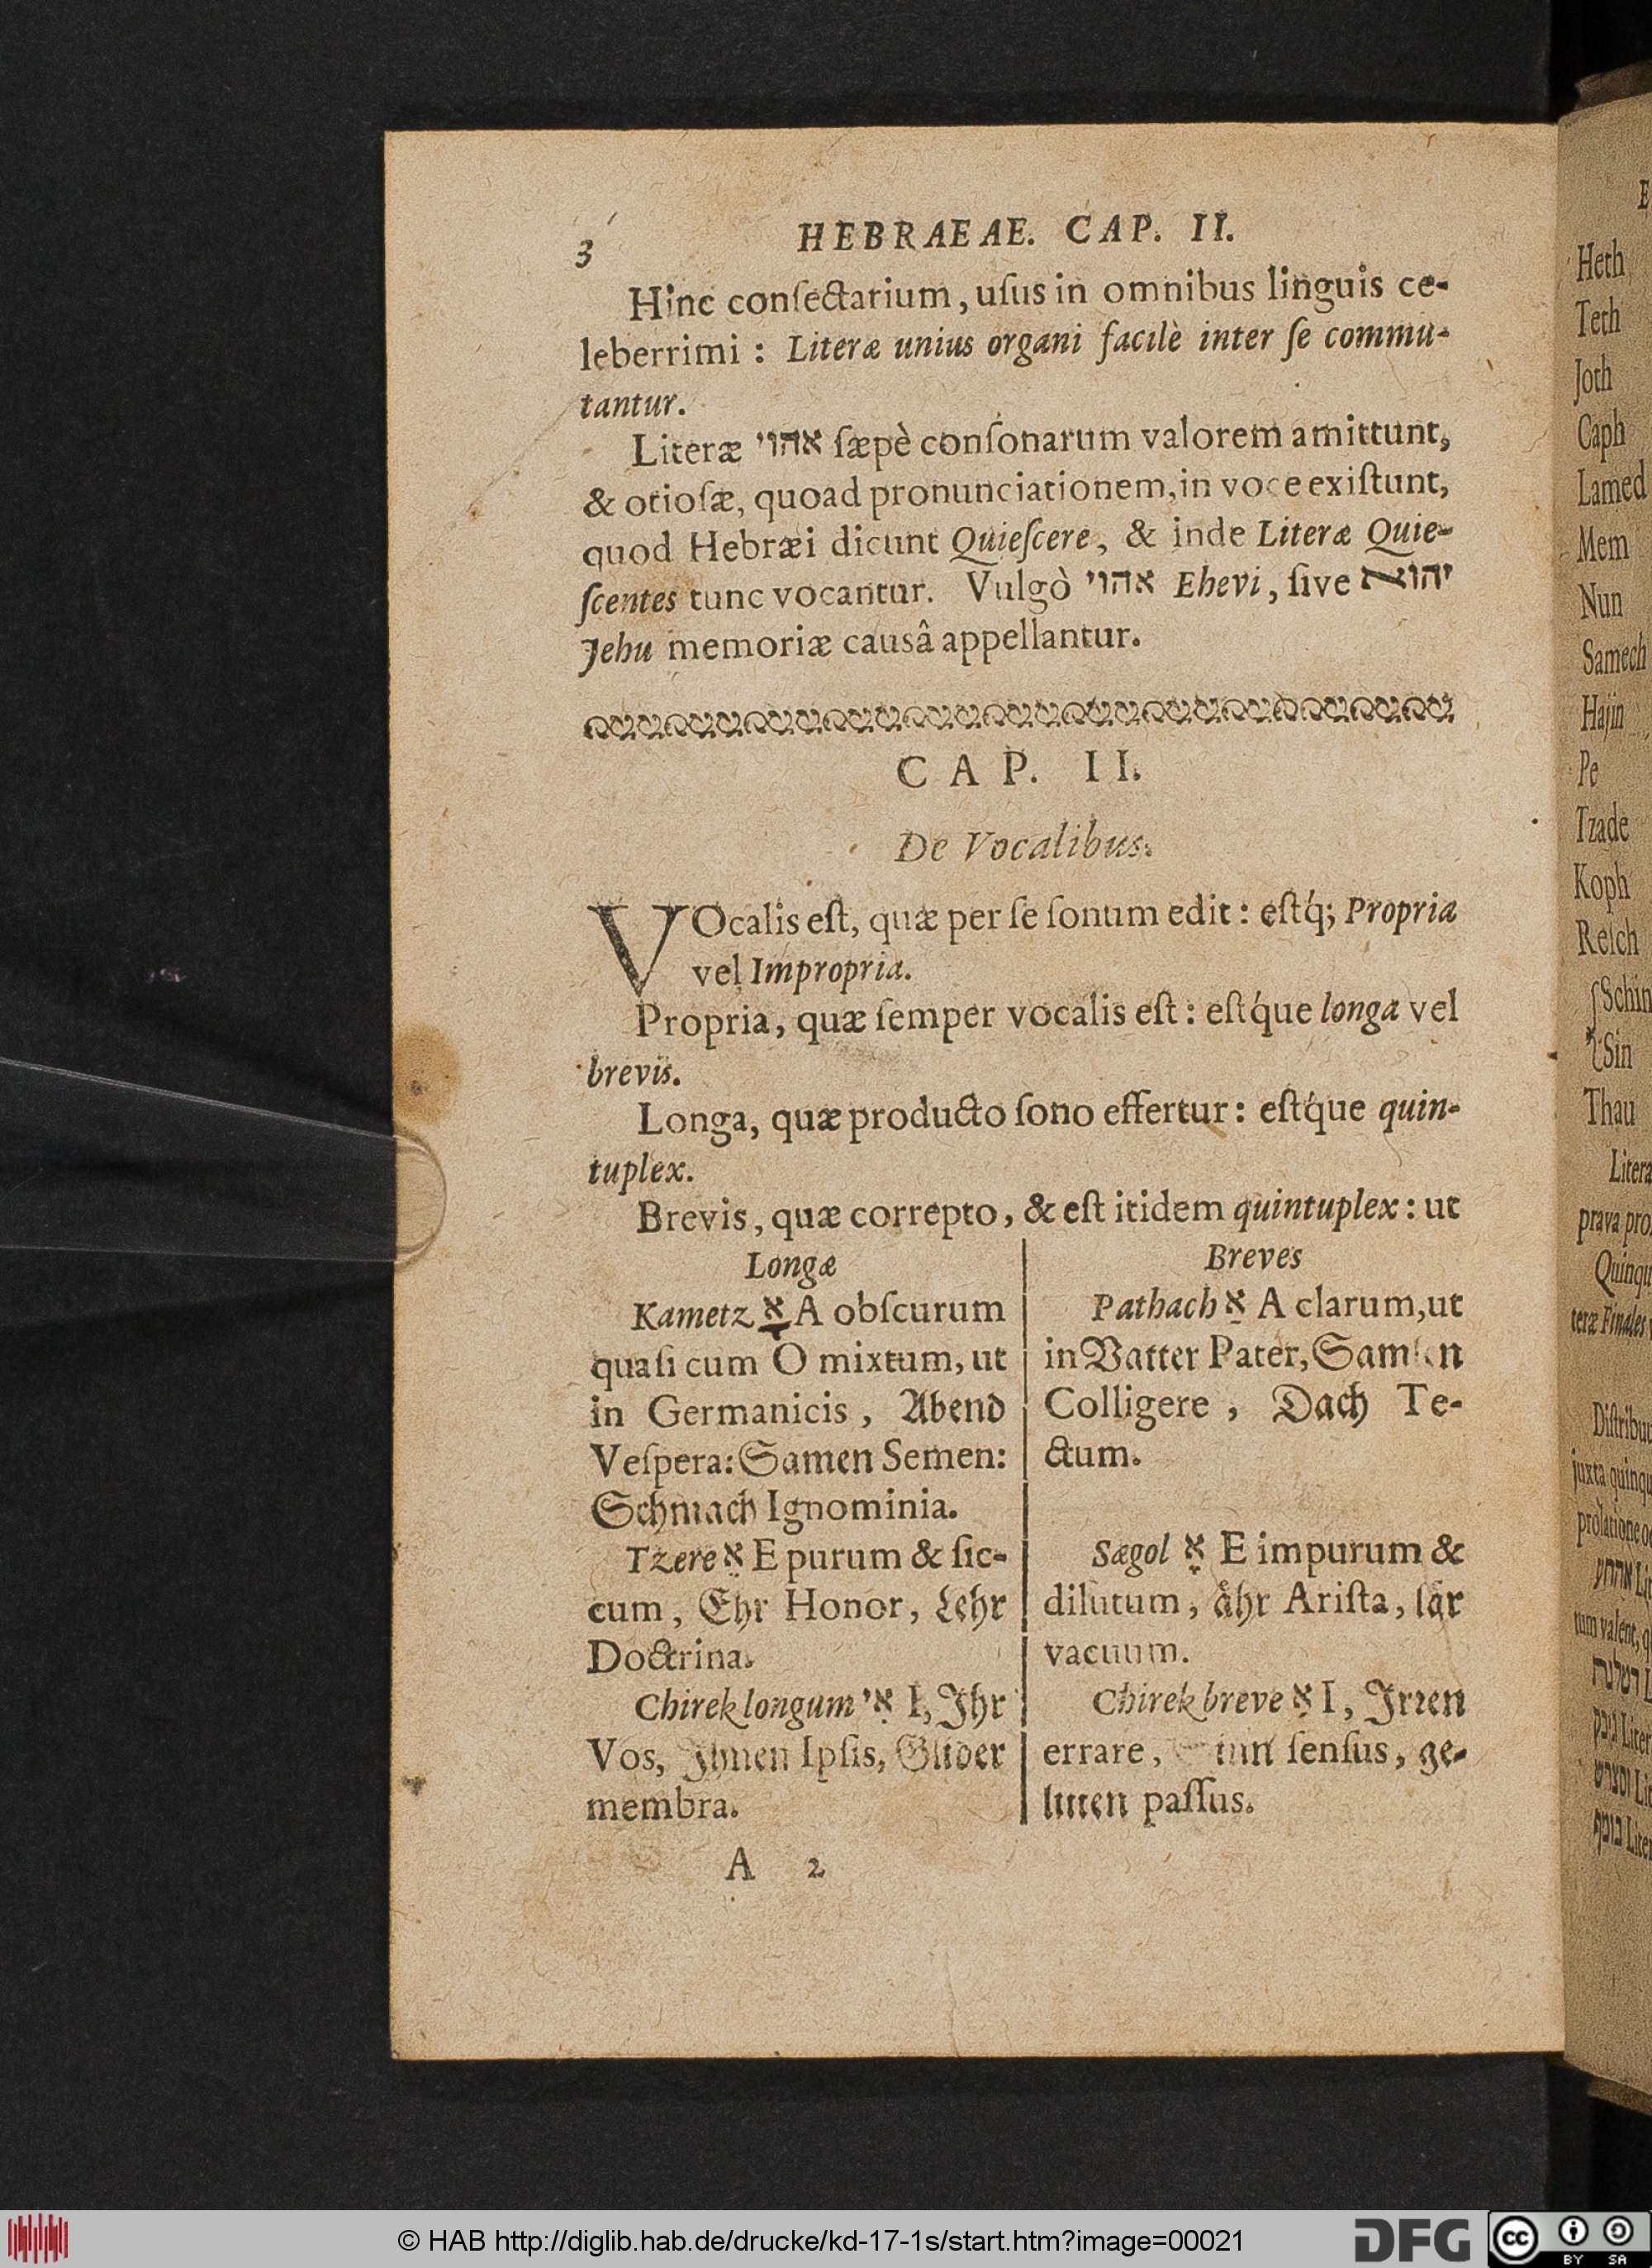 3 HEBRAEAE. CAP. II.
Hinc conſectarium, uſus in omnibus linguis ce-
leberrimi: Literæ unius organi facilè inter ſe commu-
tantur.
Literæ אהוי ſæpè conſonarum valorem amittunt,
& otioſæ, quoad pronunciationem, in voce exiſtunt,
quod Hebræi dicunt Quieſcere, & inde Literæ Quie-
ſcentes tunc vocantur. Vulgò אהוי Ehevi, ſive יהוא
Jehu memoriæ causâ appellantur.
CAP. II.
De Vocalibus.
VOcalis eſt, quæ per ſe ſonum edit: eſtq́; Propria
vel Impropria.
Propria, quæ ſemper vocalis eſt: eſtq́ue longa vel
brevis.
Longa, quæ producto ſono effertur: eſtq́ue quin-
tuplex.
Brevis, quæ correpto, & eſt itidem quintuplex: ut
Longæ
Kametz אָ A obſcurum
quaſi cum O mixtum, ut
in Germanicis, Abend
Veſpera: Samen Semen:
Schmach Ignominia.
Tzere אֵ E purum & ſic-
cum, Ehr Honor, Lehr
Doctrina.
Chirek longum אִי I, Jhr
Vos, Jhnen Ipſis, Glider
membra.
Breves
Pathach אַ A clarum, ut
in Vatter Pater, Samlen
Colligere, Dach Te-
ctum.
Sægol אֶ E impurum &
dilutum, åhr Ariſta, lår
vacuum.
Chirek breve אִ I, Jrren
errare, ſenſus, ge-
litten paſſus.
A 2
Heth
Teth
Joth
Caph
Lamed
Mem
Nun
Samech
Hajin
Pe
Tzade
Koph
Reſch
Schin
Sin
Thau
© HAB http://diglib.hab.de/drucke/kd-17-1s/start.htm?image=00021
DFG
cc
BY SA